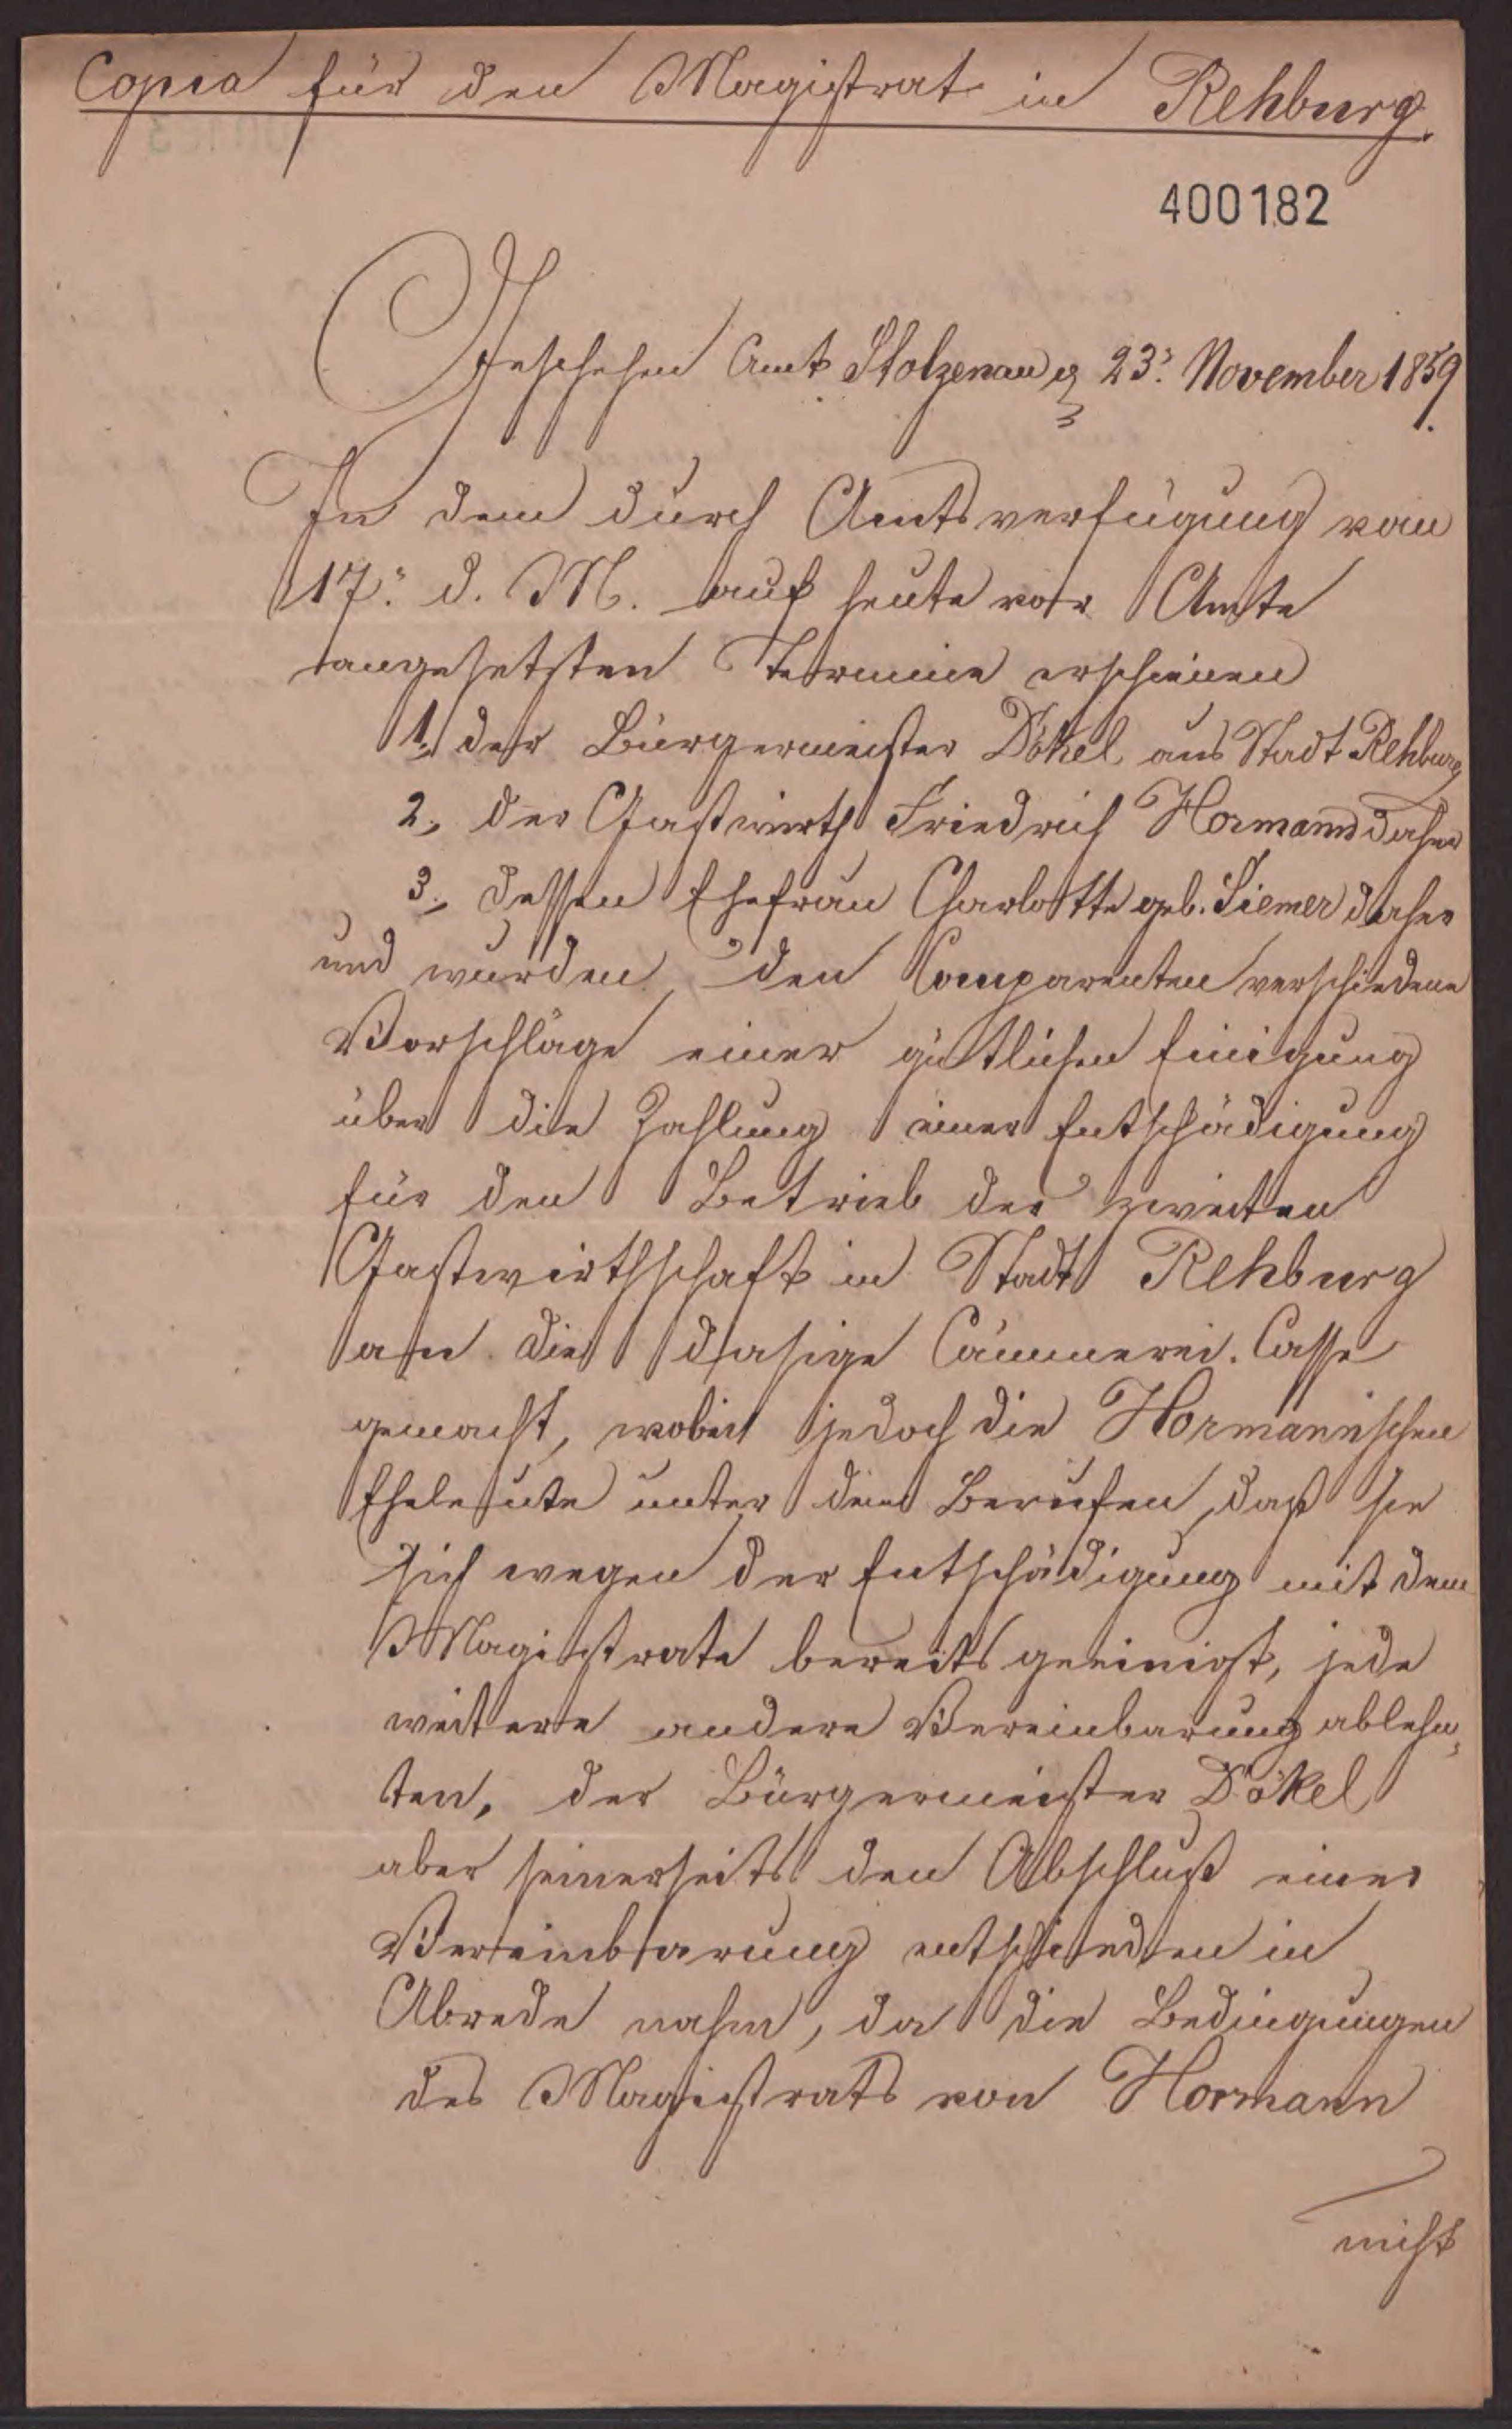 Copia für den Magistrat in Rehburg.
400182
Geschehen Amt Stolzenau 23. November 1859.
In dem durch Amtsverfügung vom
17. d. M. auf heute vor Amte
angesetzten Termine erschienen
1., der Bürgermeister Dökel aus Stadt Rehburg
2., der Gastwirth Friedrich Hormann daher
3., dessen Ehefrau Charlotte geb. Siemer daher
und wurden den Comparenten verschiedene
Vorschläge einer gütlichen Einigung
über die Zahlung einer Entschädigung
für den Betrieb der zweiten
Gastwirthschaft in Stadt Rehburg
an die dasige Cämmerei-Casse
gemacht, wobei jedoch die Hormannschen
Eheleute unter dem Berufen, daß sie
sich wegen der Entschädigung mit dem
Magistrate bereits geeinigt, jede
weitere andere Vereinbarung ablehn-
ten, der Bürgermeister Dökel
aber seinerseits den Abschluß einer
Vereinbarung entschieden in
Abrede nahm, da die Bedingungen
des Magistrats von Hormann
nicht